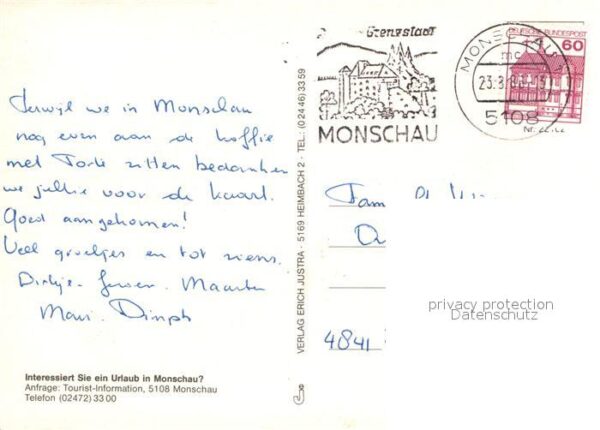 Terwijl we in Monschau
nog even aan de koffie
met Torte zitten bedanken
we jullie voor de kaart.
Goed aangekomen!
Veel groetjes en tot ziens.
Maarten
VERLAG ERICH JUSTRA · 5169 HEIMBACH 2 · TEL.: (02446) 3359
Grenzstadt
MONSCHAU
MONSCHAU
mc
23.8.
5108
DEUTSCHE BUNDESPOST
60
Fam
4841
privacy protection
Datenschutz
Interessiert Sie ein Urlaub in Monschau?
Anfrage: Tourist-Information, 5108 Monschau
Telefon (02472) 33 00